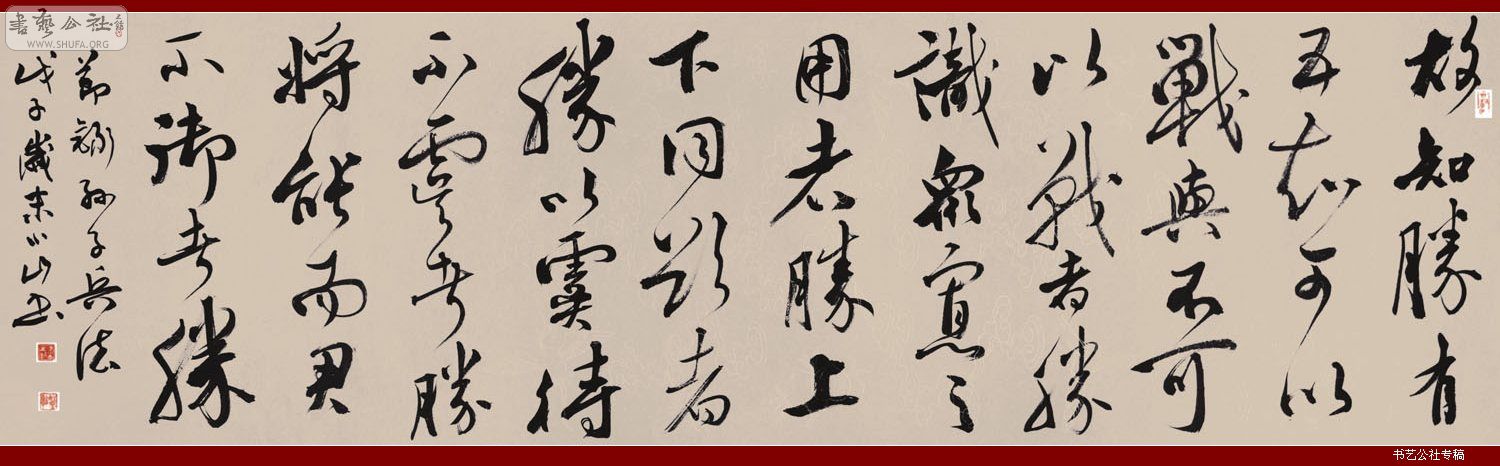 故知勝有
五知可以
戰與不可
以戰者勝
識衆寡之
用者勝上
下同欲者
勝以虞待
不虞者勝
將能而君
不御者勝
節録孫子兵法
戊子歲末小山書
書藝公社
WWW.SHUFA.ORG
书艺公社专稿